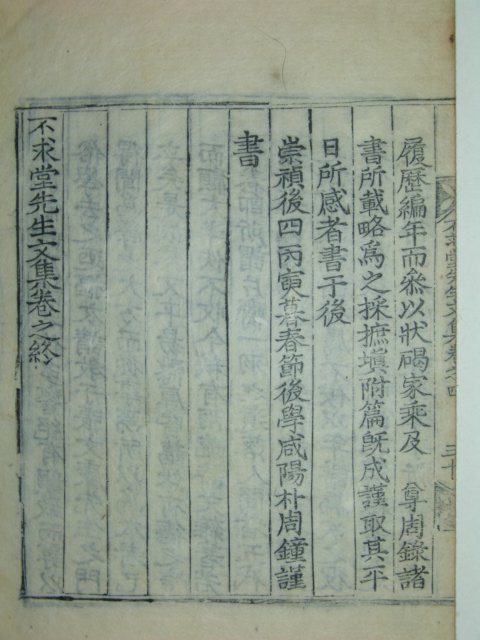 履歷編年而叅以狀碣家乘及 尊周錄諸
書所載略爲之採摭塡附篇旣成謹取其平
日所感者書于後
崇禎後四丙寅暮春節後學咸陽朴周鐘謹
書
不求堂先生文集卷之終